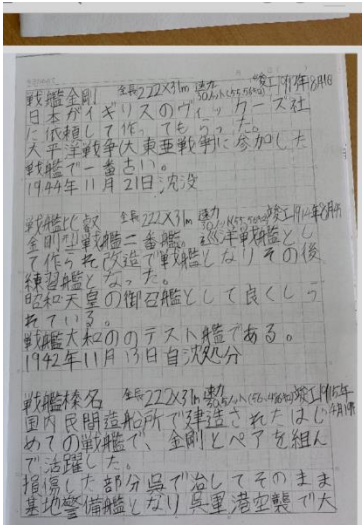 戦艦金剛 全長222×31m 速力30ノット(55.56㎞) 竣工1913年8月16
日本がイギリスのヴィッカース社
に依頼して作ってもらった。
太平洋戦争(大東亜戦争)に参加した
戦艦で一番古い。
1944年11月21日沈没
戦艦比叡 全長222×31m 速力 竣工1914年8月4日
金剛型戦艦二番艦。巡洋戦艦とし
て作られ改造で戦艦となりその後
練習艦となった。
昭和天皇の御召艦として良くしら
れている。
戦艦大和ののテスト艦である。
1942年11月13日自沈処分
戦艦榛名 全長222×31m 速力 竣工1915年4月19日
国内民間造船所で建造されたはじ
めての戦艦で、金剛とペアを組ん
で活躍した。
損傷した部分呉で治してそのまま
基地警備艦となり呉軍港空襲で大